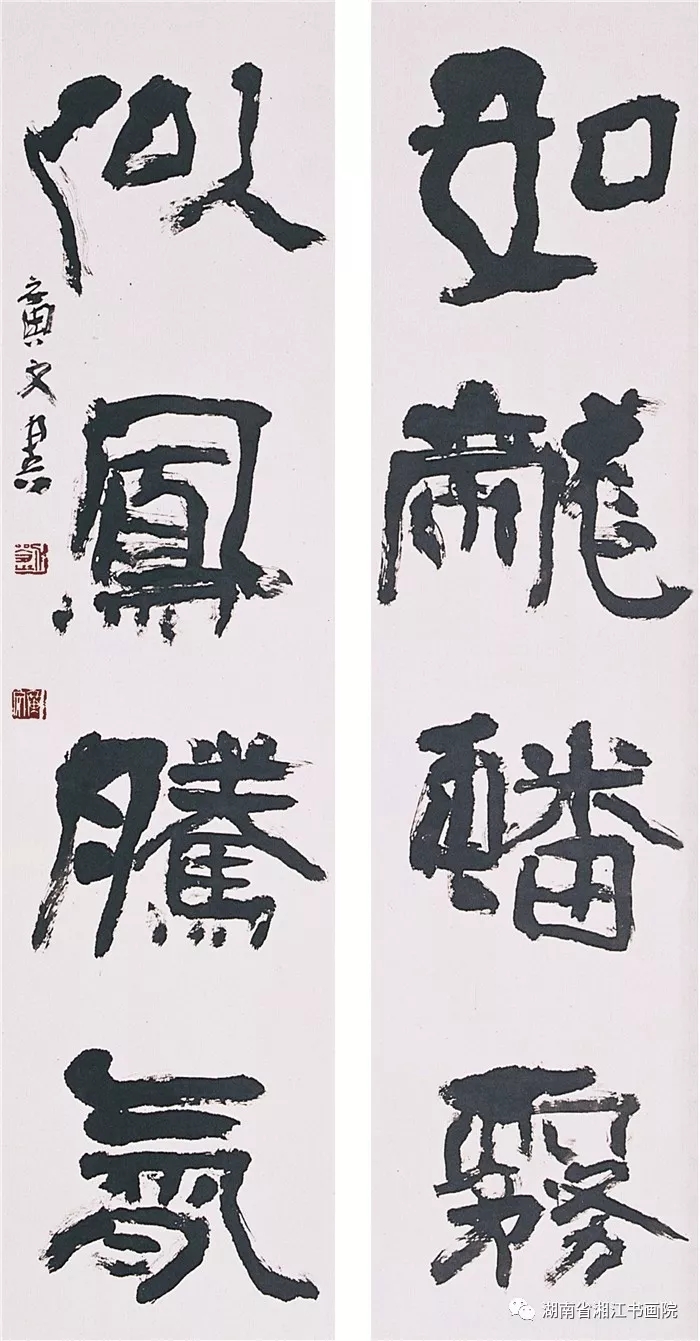 如龍蟠霧
似鳳騰氣
廣文書
湖南省湘江书画院